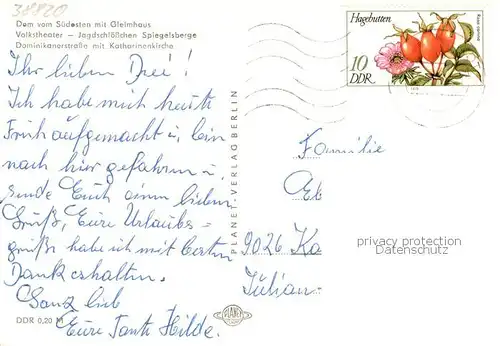 38820
Dom vom Südosten mit Gleimhaus
Volkstheater — Jagdschlößchen Spiegelsberge
Dominikanerstraße mit Katharinenkirche
Hagebutten
Rosa canina
10
DDR
Ihr lieben Drei!
Ich habe mich heute
Früh aufgemacht u. bin
nach hier gefahren u.
sende Euch einen lieben
Gruß, Eure Urlaubs=
grüße habe ich mit bestem
Dank erhalten.
Ganz lieb
Eure Tante Hilde.
PLANET-VERLAG BERLIN
Familie
Eb
9026 Ka
Julian
privacy protection
Datenschutz
DDR 0,20 M
PLANET